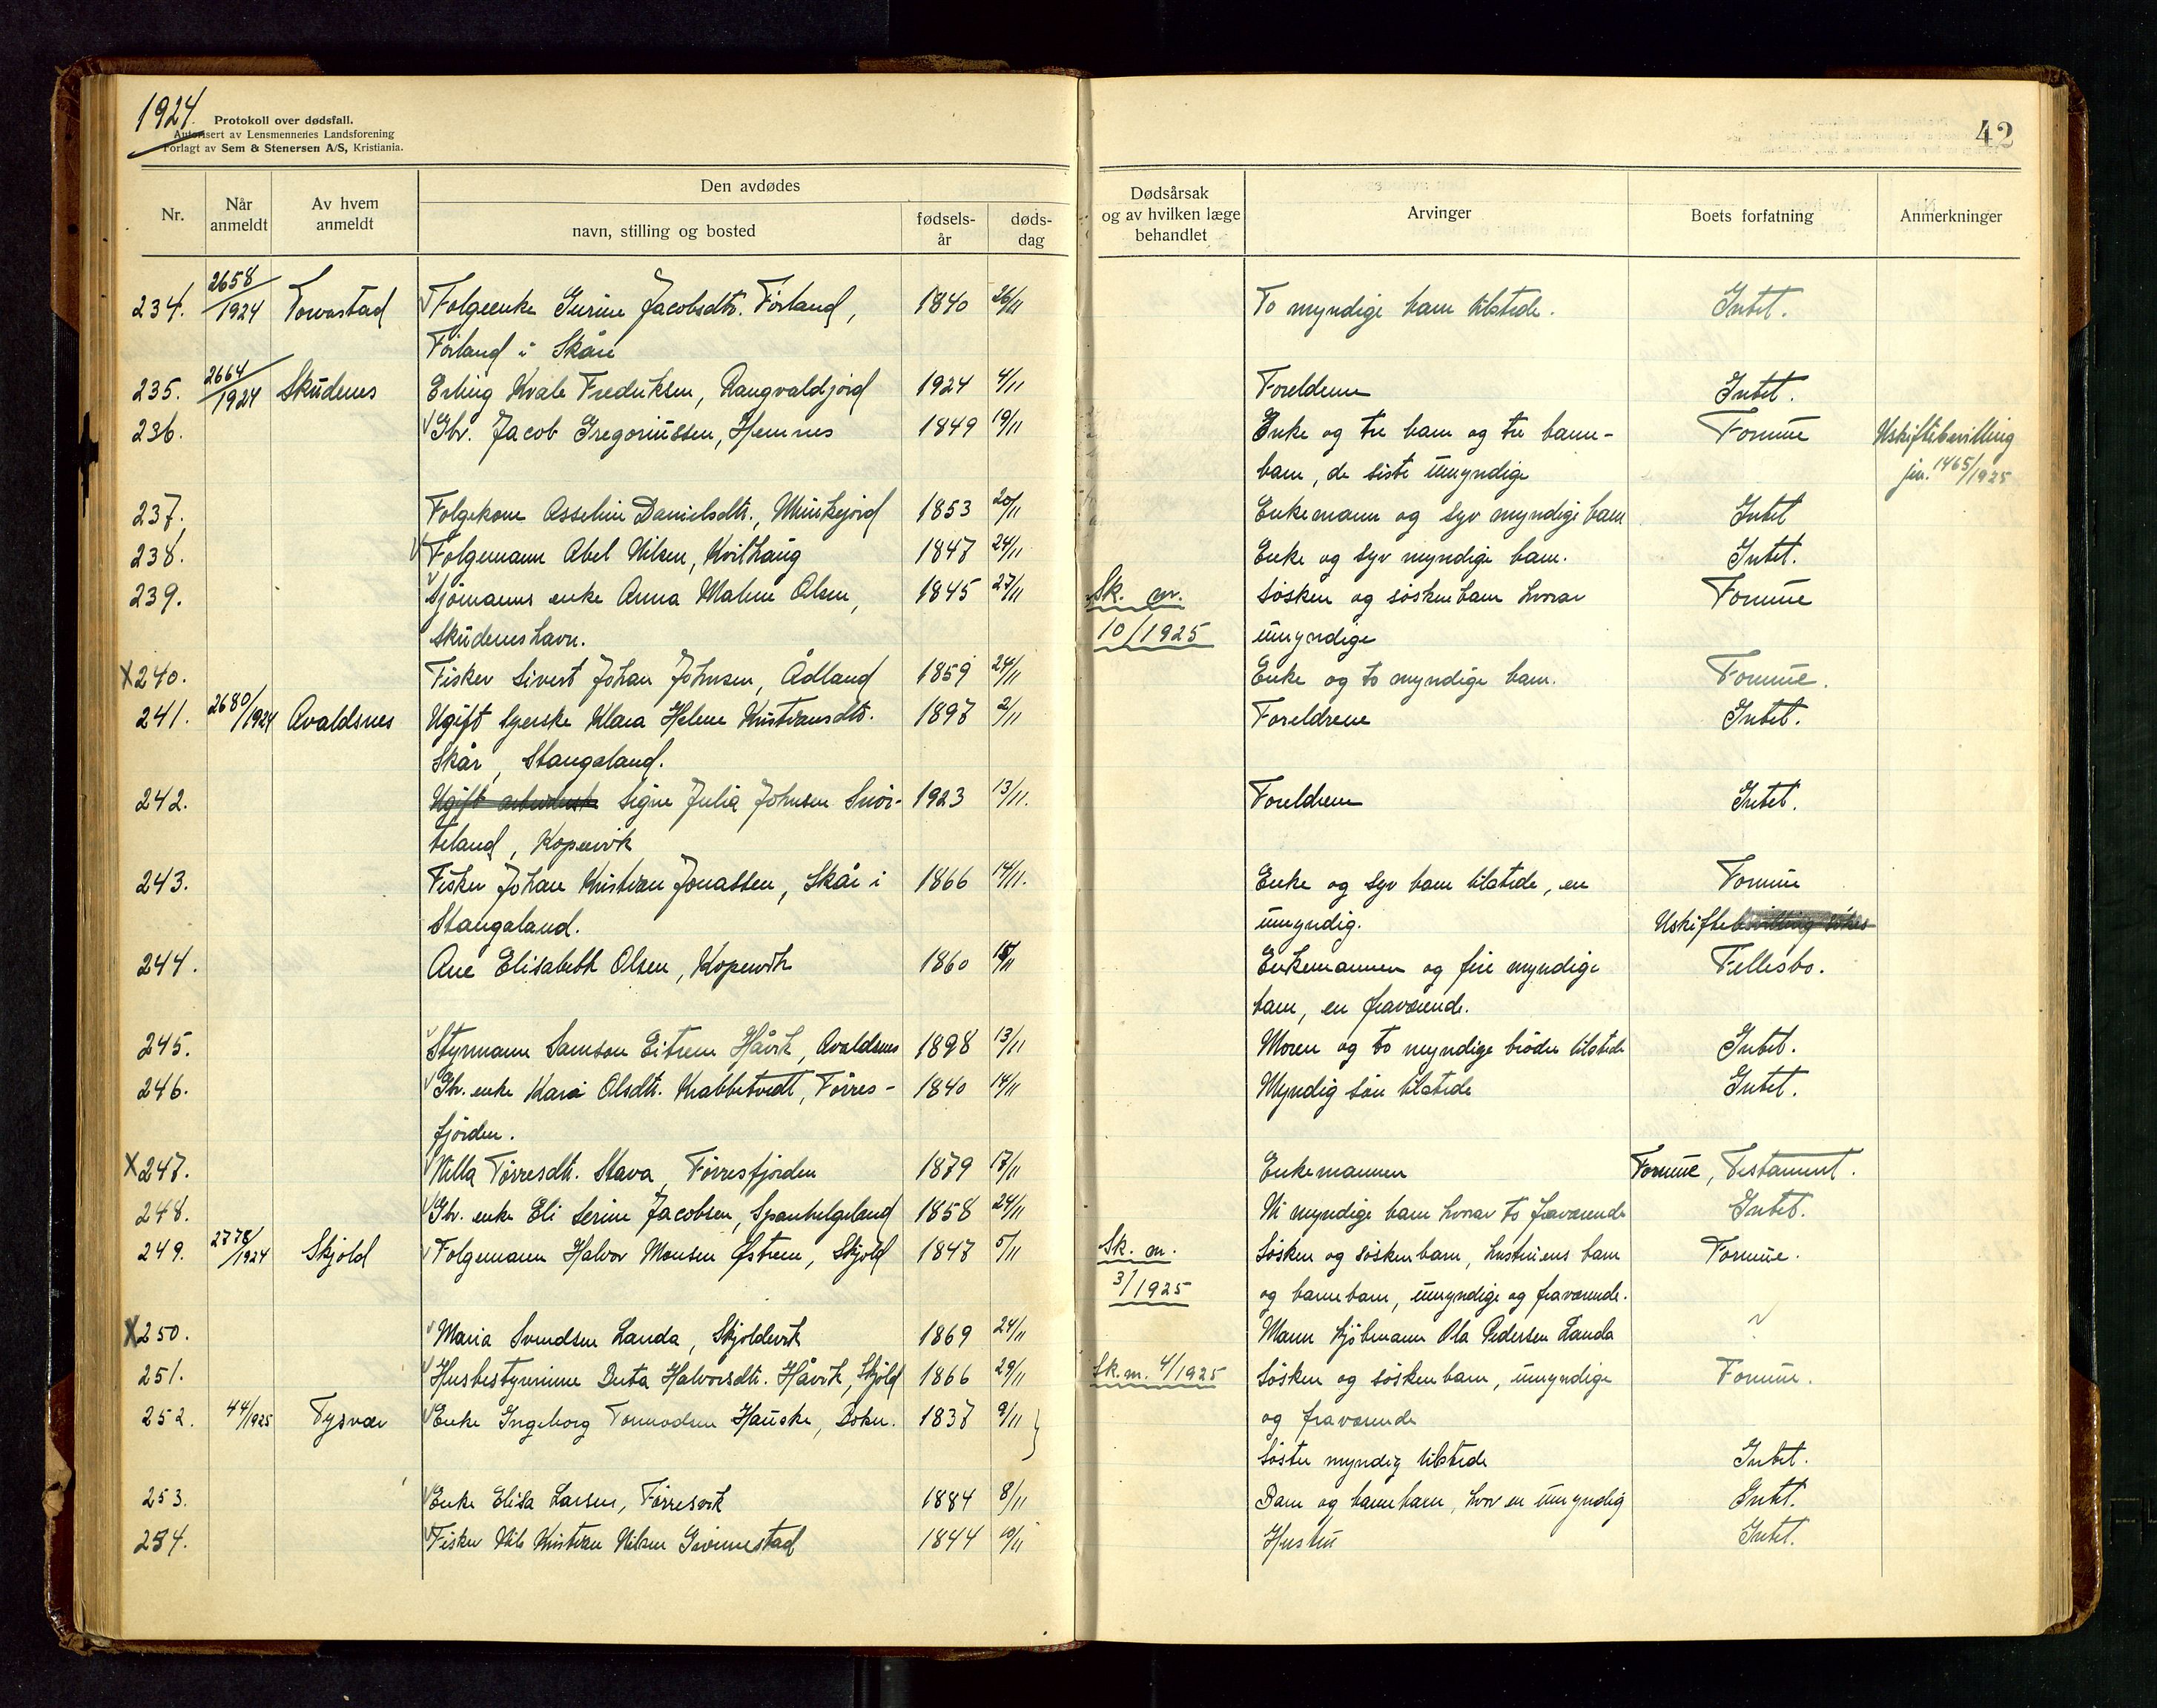 1924.
Protokoll over dødsfall.
Autorisert av Lensmennenes Landsforening
Forlagt av Sem & Stenersen A/S, Kristiania.
42
Nr.
Når anmeldt
Av hvem anmeldt
Den avdødes
navn, stilling og bosted
fødsels-år
døds-dag
Dødsårsak og av hvilken læge behandlet
Arvinger
Boets forfatning
Anmerkninger
234. 2658/1924 Torvastad Folgeenke Gurine Jacobsdtr. Førland, 1840 26/11 To myndige barn tilstede. Intet.
Førland i Skåre
235. 2664/1924 Skudenes Erling Kvale Fredriksen, Rangvaldjord 1924 4/11 Foreldrene Intet.
236. Gbr. Jacob Gregoriussen, Hemnes 1849 19/11 Enke og tre barn og tre barne- Formue Uskiftebevilling
barn, de siste umyndige jnr. 1465/1925
237. Folgekone Asseline Danielsdtr., Munkejord 1853 20/11 Enkemann og syv myndige barn Intet
238. Folgemann Abel Nilsen, Kvilhaug 1847 24/11 Enke og syv myndige barn. Intet.
239. Sjømanns enke Anna Malene Olsen, 1845 27/11 Sk. m. Søsken og søskenbarn hvorav Formue
Skudeneshavn. 10/1925 umyndige
X 240. Fisker Sivert Johan Johnsen, Ådland 1859 24/11 Enke og to myndige barn. Formue.
241. 2680/1924 Avaldsnes Ugift syerske Klara Helene Kristiansdtr. 1897 2/11 Foreldrene Intet.
Skår, Stangaland.
242. Ugift Signe Julia Johnsen Snør- 1923 13/11. Foreldrene Intet.
teland, Kopervik
243. Fisker Johan Kristian Jonassen, Skår i 1866 14/11. Enke og syv barn tilstede, en Formue
Stangaland. umyndig. Uskiftebevilling søkes
244. Ane Elisabeth Olsen, Kopervik 1860 Enkemannen og fire myndige Fellesbo.
barn, en fraværende.
245. Styrmann Samson Eitrem Håvik, Avaldsnes 1898 13/11 Moren og to myndige brødre tilstede Intet.
246. Gbr. enke Kari Olsdtr. Krabbetvedt, Førres- 1840 14/11 Myndig søn tilstede Intet.
fjorden.
X 247. Nilla Tørresdtr. Stava, Førresfjorden 1879 17/11 Enkemannen Formue, Testament.
248. Gbr. enke Eli Serine Jacobsen, Spanhelgeland 1858 24/11 Ni myndige barn hvorav to fraværende Intet.
249. 2778/1924 Skjold Folgemann Halvor Monsen Østrem, Skjold 1847 5/11 Sk. m. Søsken og søskenbarn, hustruens barn Formue.
3/1925 og barnebarn, umyndige og fraværende.
X 250. Maria Svendsen Landa, Skjoldevik 1869 24/11 Mann kjøbmann Ola Pedersen Landa
251. Husbestyrerinne Berta Halvorsdtr. Håvik, Skjold 1866 29/11 Sk. m. 4/1925 Søsken og søskenbarn, umyndige Formue.
252. 44/1925 Tysvær Enke Ingeborg Tormodsen Hauske, Bokn. 1837 9/11 og fraværende
Søster myndig tilstede Intet.
253. Enke Elisa Larsen, Førresvik 1884 8/11 Barn og barnebarn, hvor en umyndig Intet.
254. Fisker Nils Kristian Nilsen Grinnestad 1844 10/11 Hustru Intet.